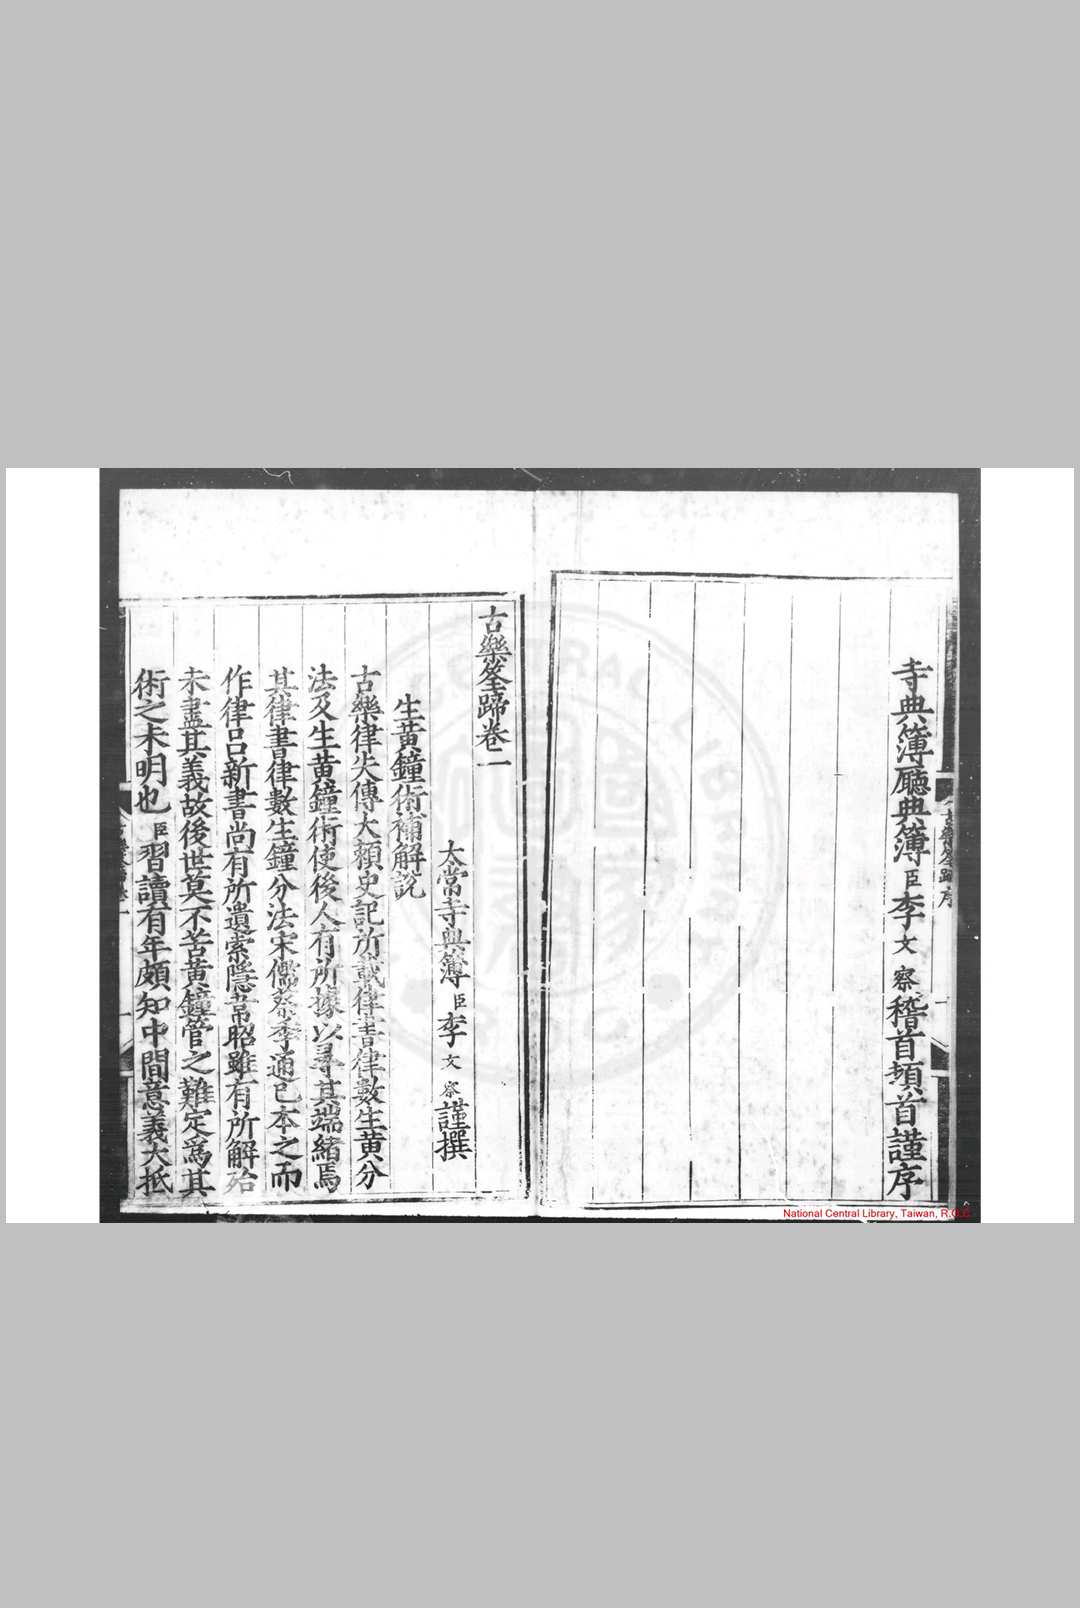 寺典簿廳典簿臣李文察稽首頓首謹序
古樂筌蹄卷二
太常寺典簿臣李文察謹撰
生黃鐘術補解說
古樂律失傳大賴史記所載律書律數生黃分
法及生黃鐘術使後人有所據以尋其端緒焉
其律書律數生鐘分法宋儒蔡季通已本之而
作律呂新書尚有所遺索隱韋昭雖有所解殆
未盡其義故後世莫不苦黃鐘管之難定爲其
術之未明也臣習讀有年頗知中間意義大抵
National Central Library, Taiwan, R.O.C.